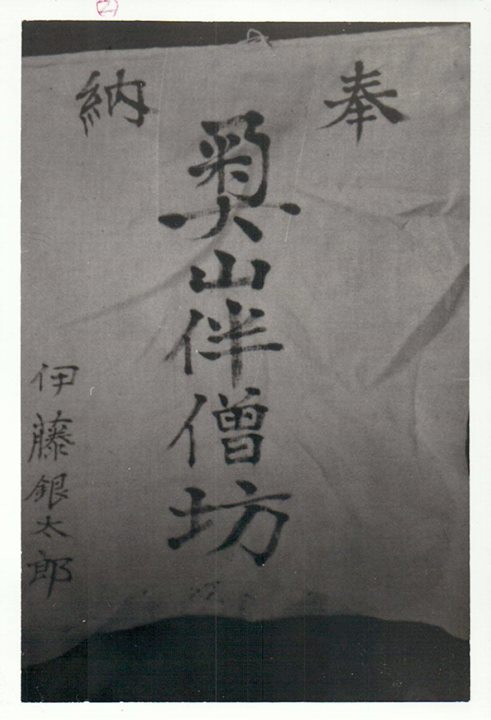 ②
奉納
奧山伴僧坊
伊藤銀太郎